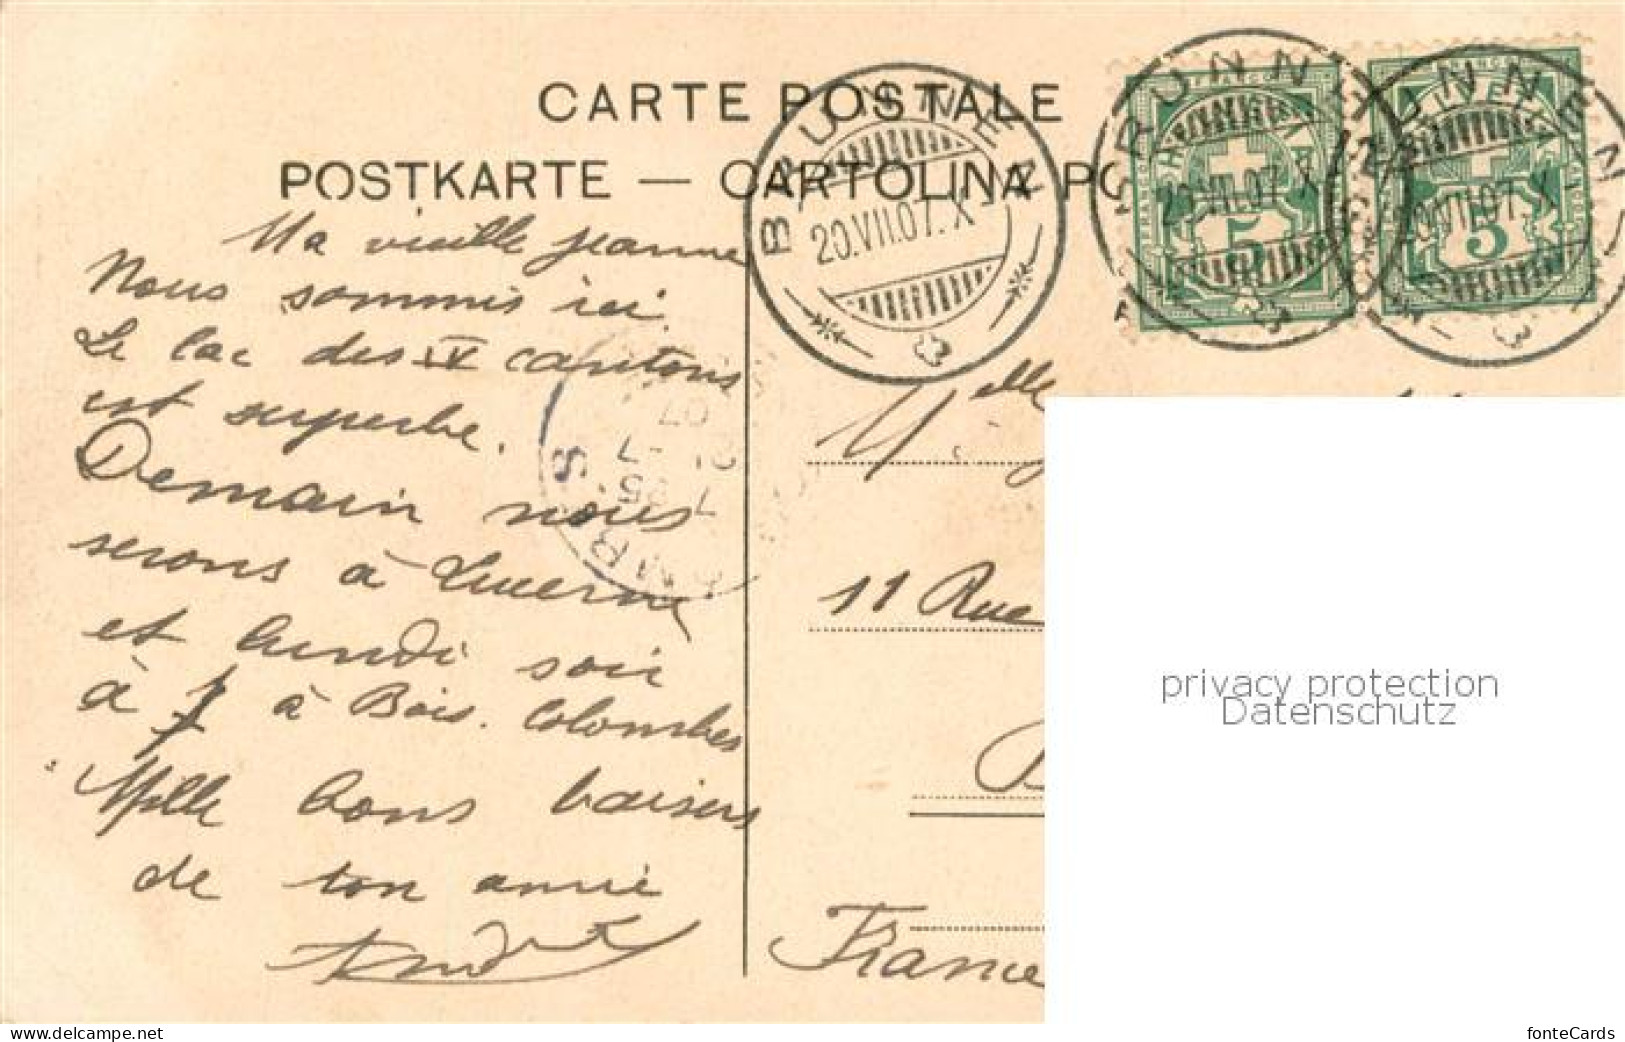 CARTE POSTALE
POSTKARTE — CARTOLINA PO
BRUNNEN
20.VII.07.X
BRUNNEN
20.VII.07.X
5
BRUNNEN
20.VII.07.X
5
Ma vieille Jeanne
Nous sommes ici.
Le lac des IV cantons
est superbe.
Demain nous
serons à Lucerne
et lundi soir
à 7 à Bois. Colombes
Mille bons baisers
de ton amie
Melle
11 Rue
France
privacy protection
Datenschutz
www.delcampe.net
fonteCards